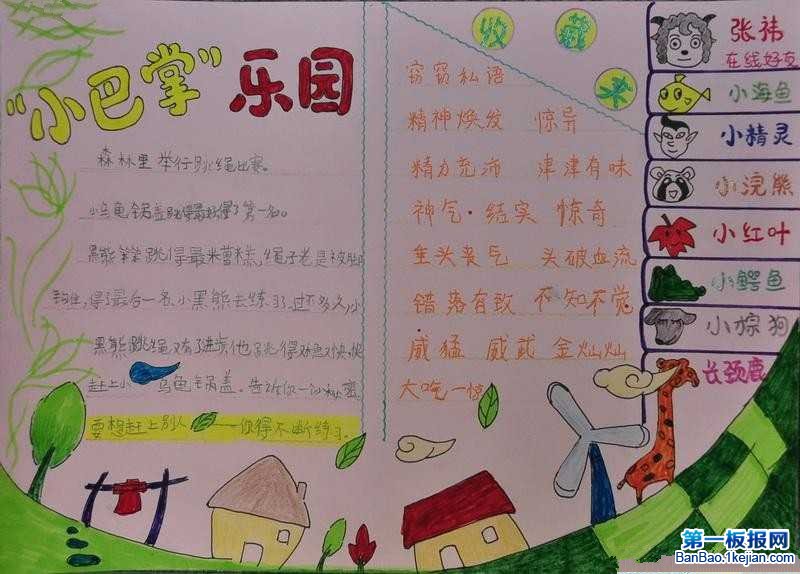 “小巴掌”乐园
森林里举行跳绳比赛。
小乌龟锅盖跳得最好得了第一名。
黑熊 跳得最糟糕,绳子老是被脚
住,得了最后一名,小黑熊去练习了,过不多久,小
黑熊跳绳又有了进步,他跳得又快,
赶上小乌龟锅盖。告诉你一个秘密,
要想赶上别人——你得不断练习。
收藏夹
窃窃私语
精神焕发 惊异
精力充沛 津津有味
神气·结实 惊奇
垂头丧气 头破血流
错落有致 不知不觉
威猛 威武 金灿灿
大吃一惊
张祎
在线好友
小海鱼
小精灵
小浣熊
小红叶
小鳄鱼
小棕狗
长颈鹿
第一板报网
BanBao.1kejian.com